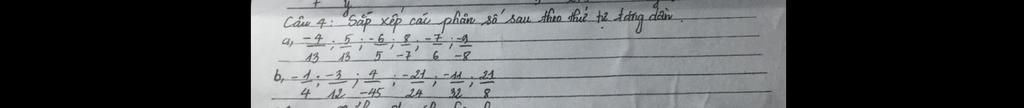 Câu 4: Sắp xếp các phân số sau theo thứ tự tăng dần.
a, -4/13 ; 5/13 ; -6/5 ; 8/-7 ; -7/6 ; -9/-8
b, -1/4 ; -3/12 ; 4/-45 ; -21/24 ; -11/32 ; 21/8